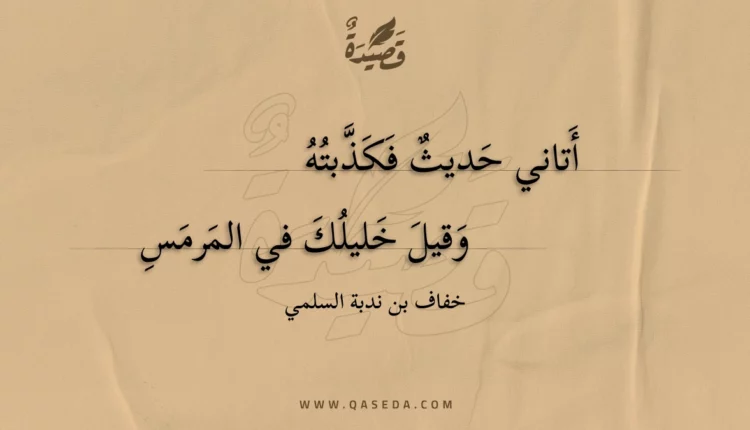 قَصِيدَةٌ
أَتاني حَديثٌ فَكَذَّبتُهُ
وَقيلَ خَليلُكَ في المَرمَسِ
خفاف بن ندبة السلمي
WWW.QASEDA.COM